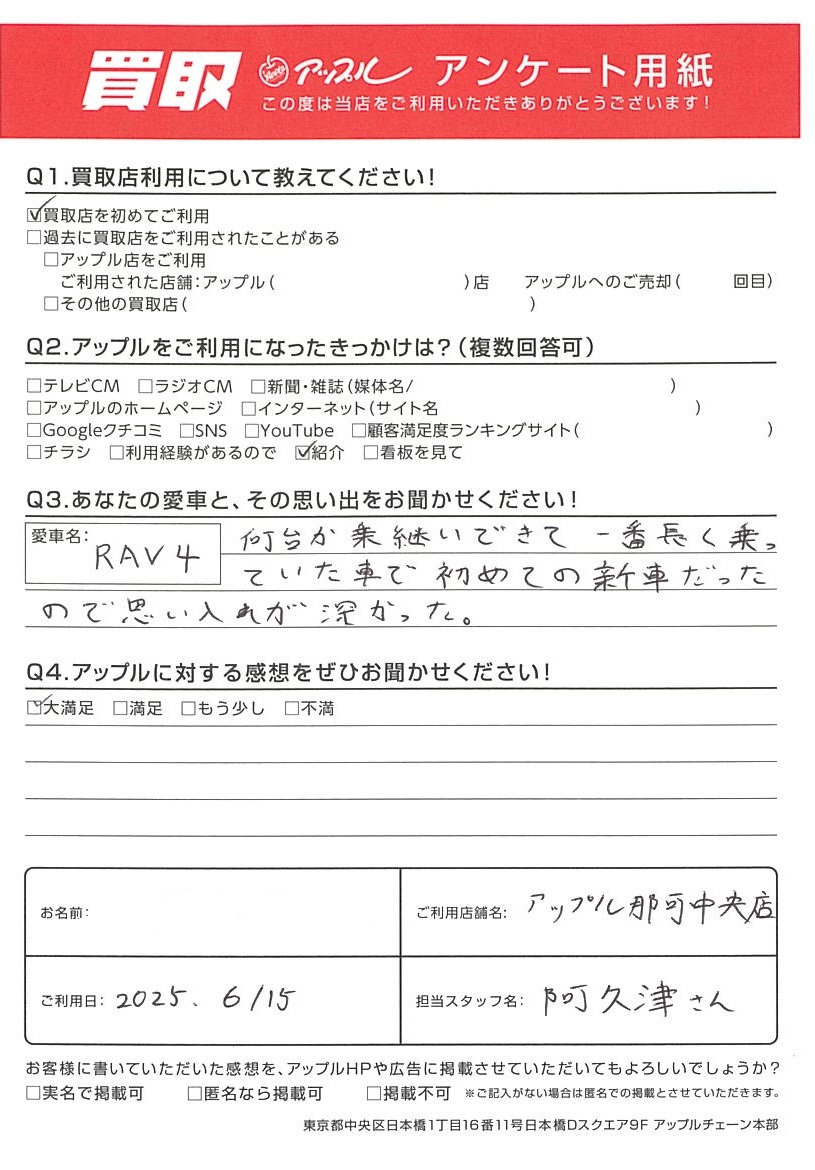 買取 アップル アンケート用紙
この度は当店をご利用いただきありがとうございます！
Q1.買取店利用について教えてください！
☑買取店を初めてご利用
□過去に買取店をご利用されたことがある
□アップル店をご利用
ご利用された店舗：アップル（ ）店 アップルへのご売却（ 回目）
□その他の買取店（ ）
Q2.アップルをご利用になったきっかけは？（複数回答可）
□テレビCM □ラジオCM □新聞・雑誌（媒体名/ ）
□アップルのホームページ □インターネット（サイト名 ）
□Googleクチコミ □SNS □YouTube □顧客満足度ランキングサイト（ ）
□チラシ □利用経験があるので ☑紹介 □看板を見て
Q3.あなたの愛車と、その思い出をお聞かせください！
愛車名：RAV4 何台か乗継いできて一番長く乗っ
ていた車で初めての新車だった
ので思い入れが深かった。
Q4.アップルに対する感想をぜひお聞かせください！
☑大満足 □満足 □もう少し □不満
お名前： ご利用店舗名：アップル那珂中央店
ご利用日：2025. 6/15 担当スタッフ名：阿久津さん
お客様に書いていただいた感想を、アップルHPや広告に掲載させていただいてもよろしいでしょうか？
□実名で掲載可 □匿名なら掲載可 □掲載不可 ※ご記入がない場合は匿名での掲載とさせていただきます。
東京都中央区日本橋1丁目16番11号日本橋Dスクエア9F アップルチェーン本部